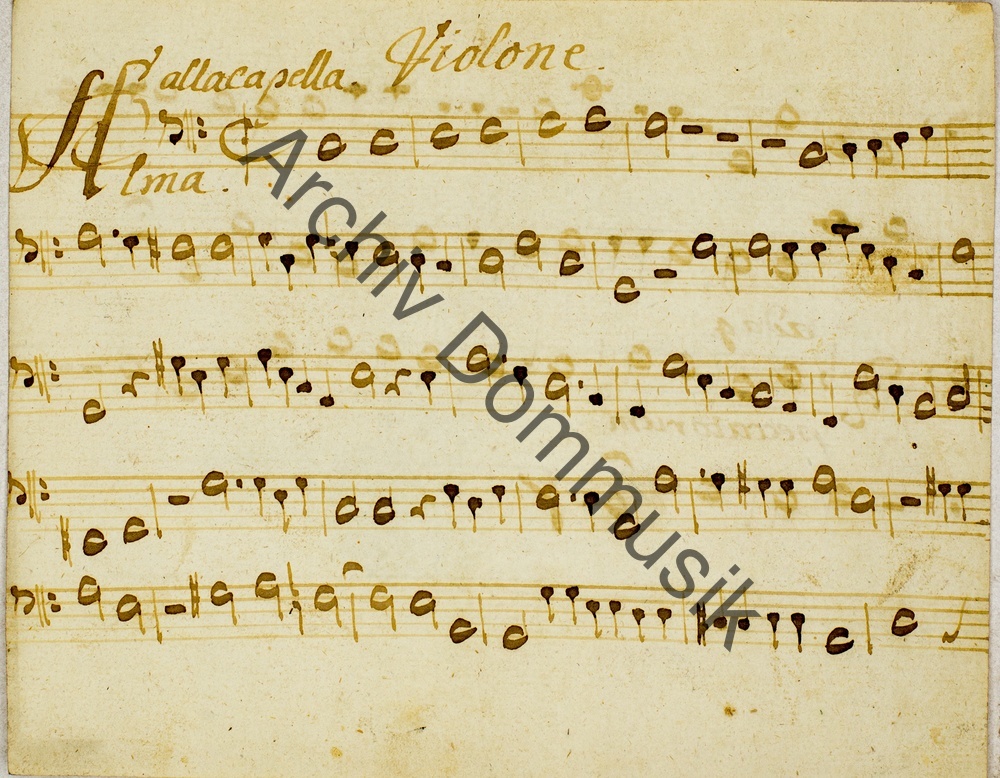 Violone.
allacapella.
Alma.
Archiv Dommusik